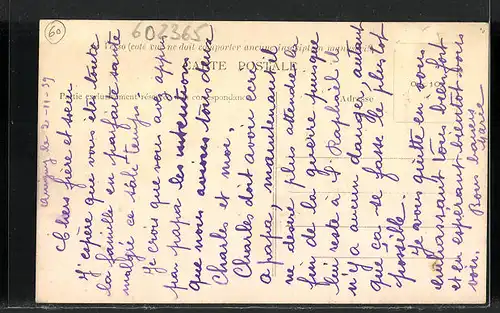 60
602365
Verso (côté vue ne doit comporter aucune inscription manuscrite)
CARTE POSTALE
Partie exclusivement réservée à la correspondance
Adresse
le 2-11-39
Chers frère et sœur
J'espère que vous êtes toute
la famille en parfaite santé
malgré ce sale temps.
Je crois que vous avez appris
par papa les intentions
que nous avions tous deux
Charles et moi,
Charles doit avoir écrit
à papa, maintenant il
ne désire plus attendre la
fin de la guerre puisque
lui reste à St Raphaël il
n'y a aucun danger, autant
que ça se fasse le plus tôt
possible.
Je vous quitte en vous
embrassant tous bien fort
et en espérant bientôt vous
voir. Bons baisers